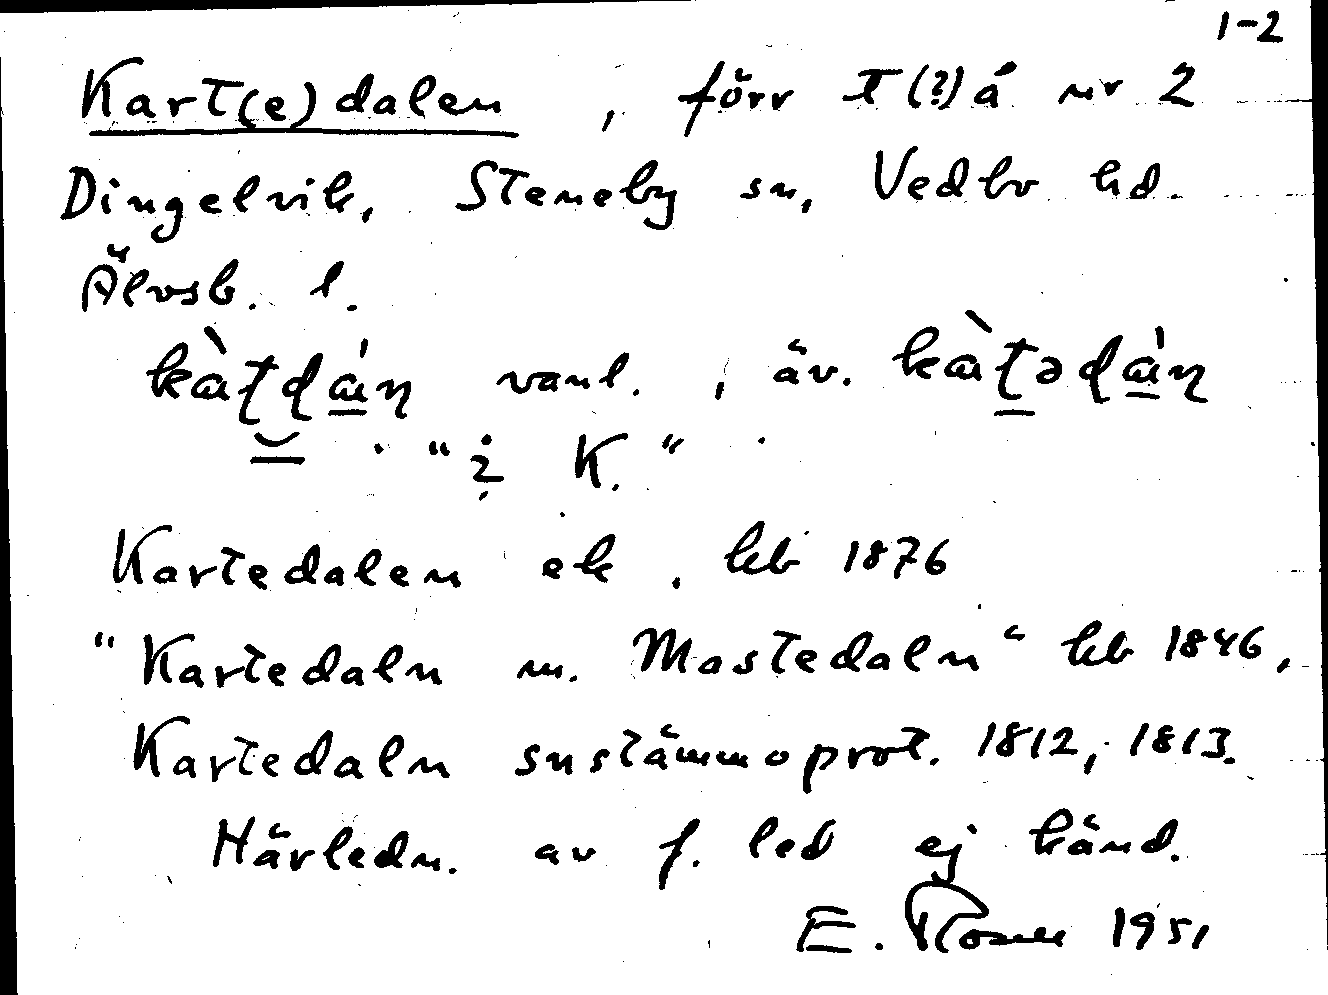 1-2
Kart(e)dalen, förr T(?) å nr 2
Dingelvik, Steneby sn, Vedbo hd.
Älvsb. l.
vanl., äv.
"i K."
Kartedalen ek. kb 1876
"Kartedaln m. Mastedaln" kb 1846,
Kartedaln snstämmoprot. 1812, 1813.
Härledn. av f. led ej känd.
E. Rosell 1951